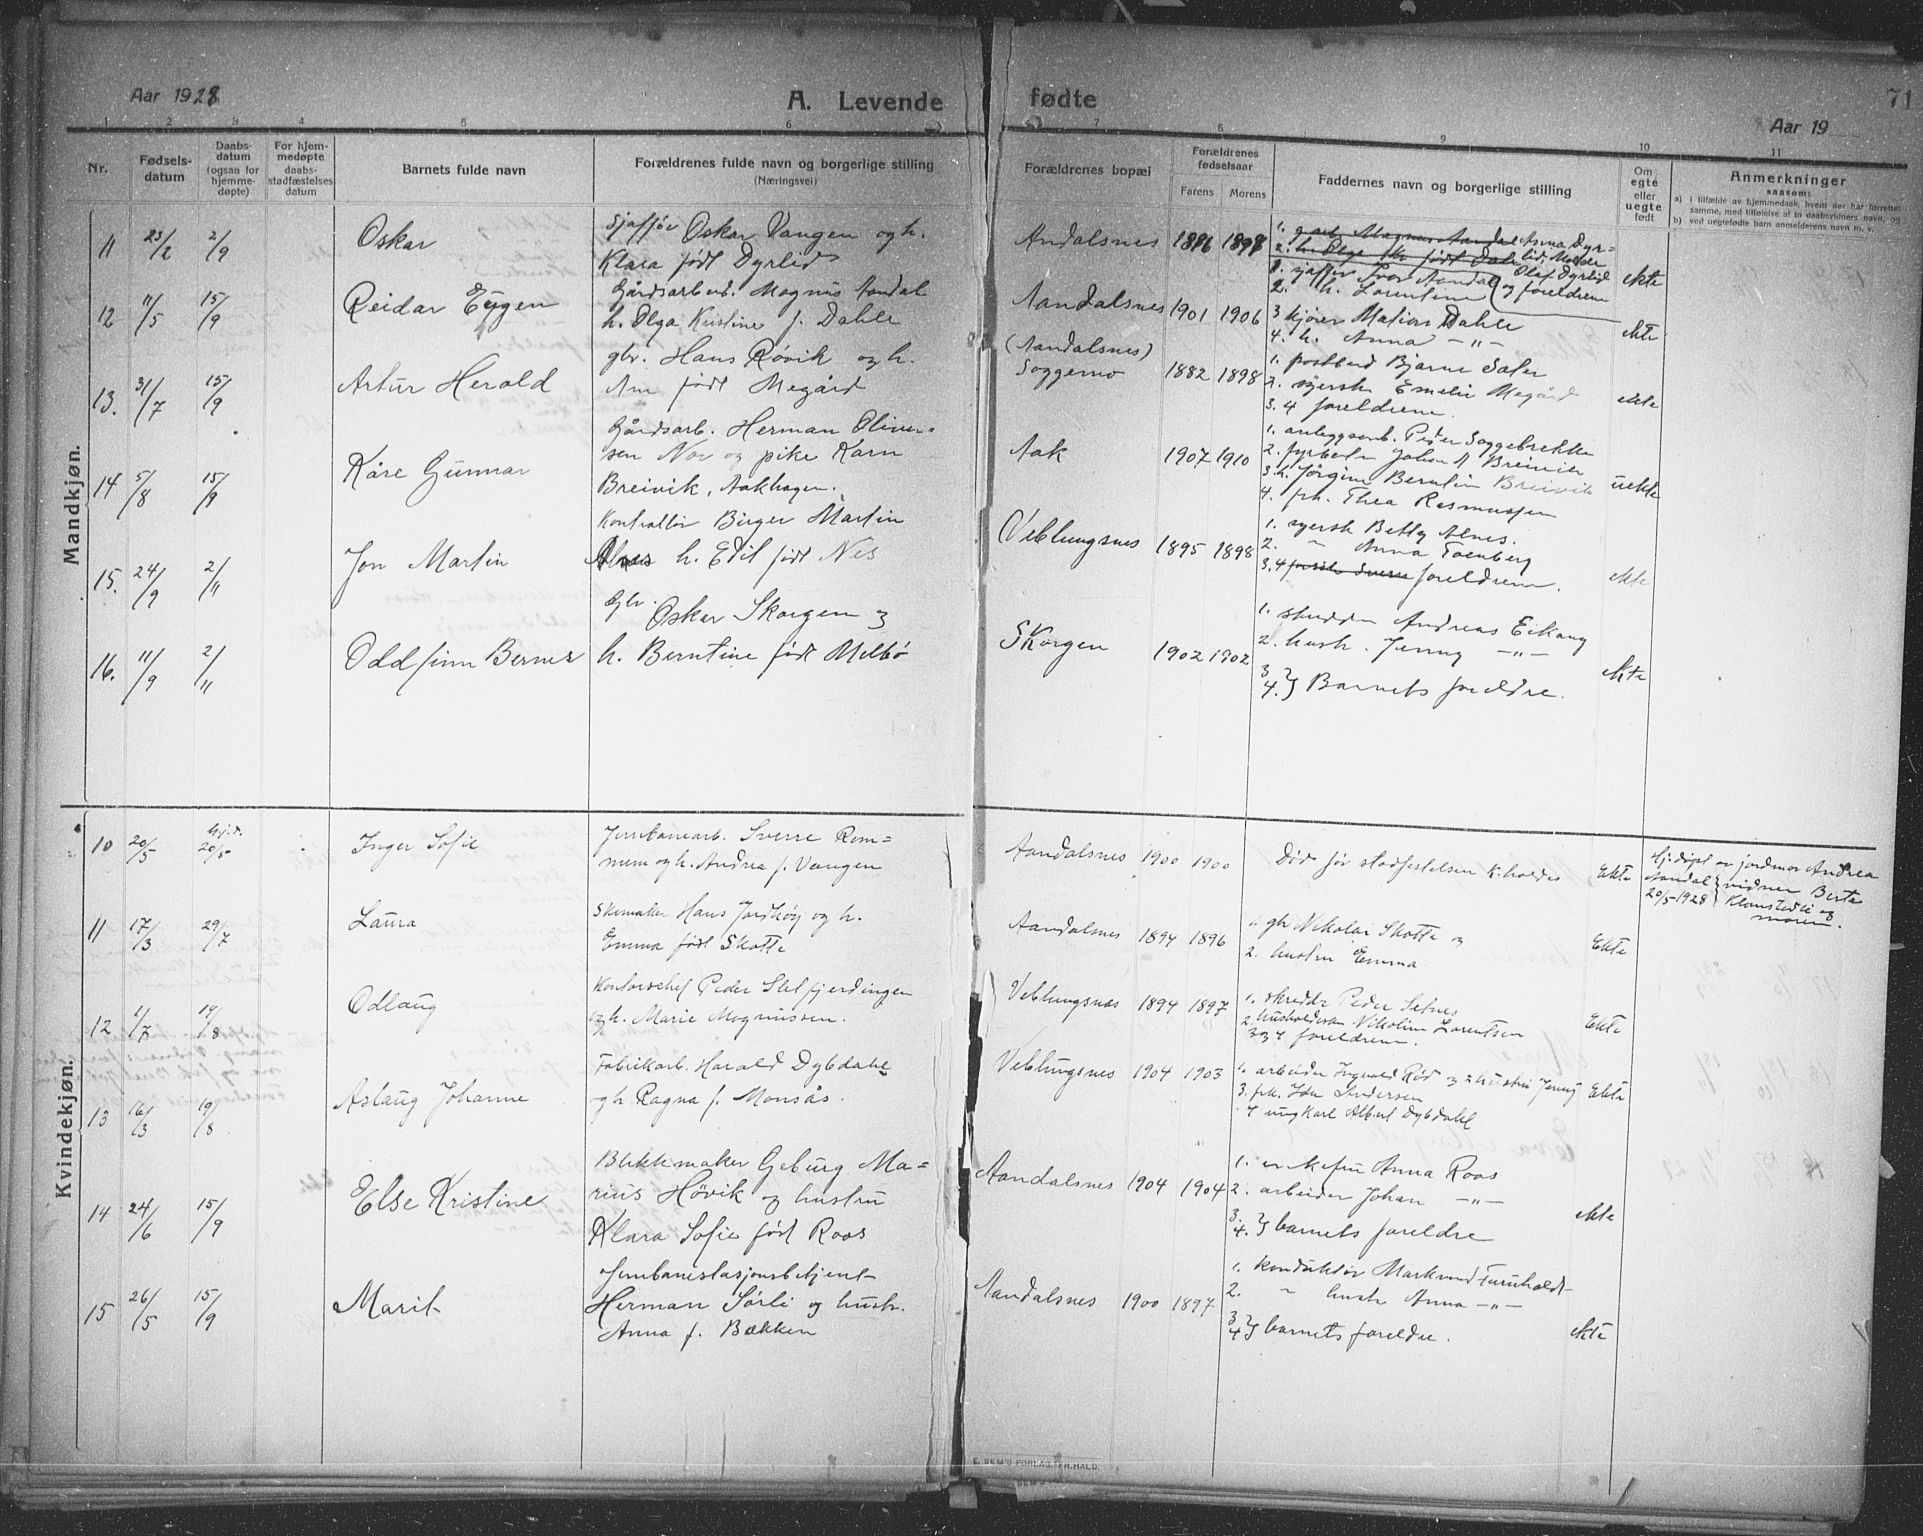 Aar 1928
A. Levende fødte
71
Aar 19
1 2 3 4 5 6 7 8 9 10 11
Nr.
Fødsels-
datum
Daabs-
datum
(ogsaa for
hjemme-
døpte)
For hjem-
medøpte
daabs-
stadfæstelses
datum
Barnets fulde navn
Forældrenes fulde navn og borgerlige stilling
(Næringsvei)
Forældrenes bopæl
Forældrenes
fødselsaar
Farens Morens
Faddernes navn og borgerlige stilling
Om
egte
eller
uegte
født
Anmerkninger
saasom:
a) i tilfælde av hjemmedaab, hvem der har forrettet
samme, med tilføielse af to daabsvidners navn, og
b) ved uegtefødte barn anmelderens navn m. v.
Mandkjøn.
11 23/2 2/9 Oskar
Sjaffør Oskar Vangen og h.
Klara født Dyrlid
Andalsnes 1896 1898
1. g.arb. Magnus Aandal Asma Dyr=
2. h. Olga Kr. født Dale lid, Molder
Olaf Dyrlid
og foreldrene
ekte
12 11/5 15/9 Reidar Eugen
Gårdsarbeid. Magnus Aandal
h. Olga Kristine f. Dahle
Aandalsnes 1901 1906
1. sjaffør Ivar Aandal
2. h. Lorentine
3 kjører Matias Dahle
4. h. Anna -"-
ekte
13. 31/7 15/9 Artur Herald
gbr. Hans Røvik og h.
An født Megård
(Aandalsnes)
Soggemo 1882 1898
1. postbud Bjarne Sæter
2. syersk Emelie Megård
3. 4 foreldrene.
ekte
14 5/8 15/9 Kåre Gunnar
Gårdsarb. Herman Oliver=
sen Nor og pike Karn
Breivik, Aakhagen.
Aak 1907 1910
1. anleggsarb. Peder Soggebrekke
2. fyrbøter Johan A Breivik
3. h. Jørgine Berntine Breivik
4. frk. Thea Rasmussen
uekte
15. 24/9 2/11 Jon Martin
Kontrollør Birger Martin
Alnes h. Edil født Nes
Veblungsnes 1895 1898
1. syersk Betty Alnes.
2. " Anna Toenberg
3. 4 foreldrene.
ekte
16. 11/9 2/11 Oddfinn Berner
Gbr. Oskar Skorgen og
h. Berntine født Melbø
Skorgen 1902 1902
1. skredder Andreas Eikang
2. hustr. Jenny -"-
3
4. } Barnets foreldre.
ekte
Kvindekjøn.
10 20/5 hj.d. 20/5 Inger Sofie
Jernbanearb. Sverre Rem=
mem og h. Andrea f. Vangen
Aandalsnes 1900 1900
Død før stadfestelsen k. holdes
Ekte
Hj.døpt av jordmor Andrea
Aandal } vidner Berta
20/5-1928 } Klanstedli og
moren.
11 17/3 29/7 Laura
Skomaker Hans Jordhøy og h.
Emma født Skotte
Aandalsnes 1894 1896
1. gbr Nikolai Skotte og
2. hustru Emma
Ekte
12 1/7 19/8 Odlaug
Kontorschef Peder Slettfjerdingen
og h. Marie Magnussen.
Veblungsnes 1894 1897
1. skredder Peder Setnes
2 husholdersen Nikoline Lorentsen
3 og 4 foreldrene.
Ekte
13 16/3 19/8 Aslaug Johanne
Fabrikarb. Harald Dybdahl
og h. Ragna f. Monsås.
Veblungsnes 1904 1903
1. arbeider Ingvald Rød og 2 hustru Jenny
3. frk. Ida Andersen
4 ungkarl Albert Dybdahl
Ekte
14 24/6 15/9 Else Kristine
Blikkmaker Geburg Ma=
rius Høvik og hustru
Klara Sofie født Roos
Aandalsnes 1904 1904
1. enkefru Anna Roos
2. arbeider Johan -"-
3.
4. } barnets foreldre
ekte
15 26/5 15/9 Marit
Jernbanestasjonsbetjent
Herman Sørli og hustr.
Anna f. Bækken
Aandalsnes 1900 1897
1. konduktør Markund Furuholdt
2. " hustr Anna -"-
3
4 } barnets foreldre.
ekte
E. SEM'S FORLAG, FR.HALD.